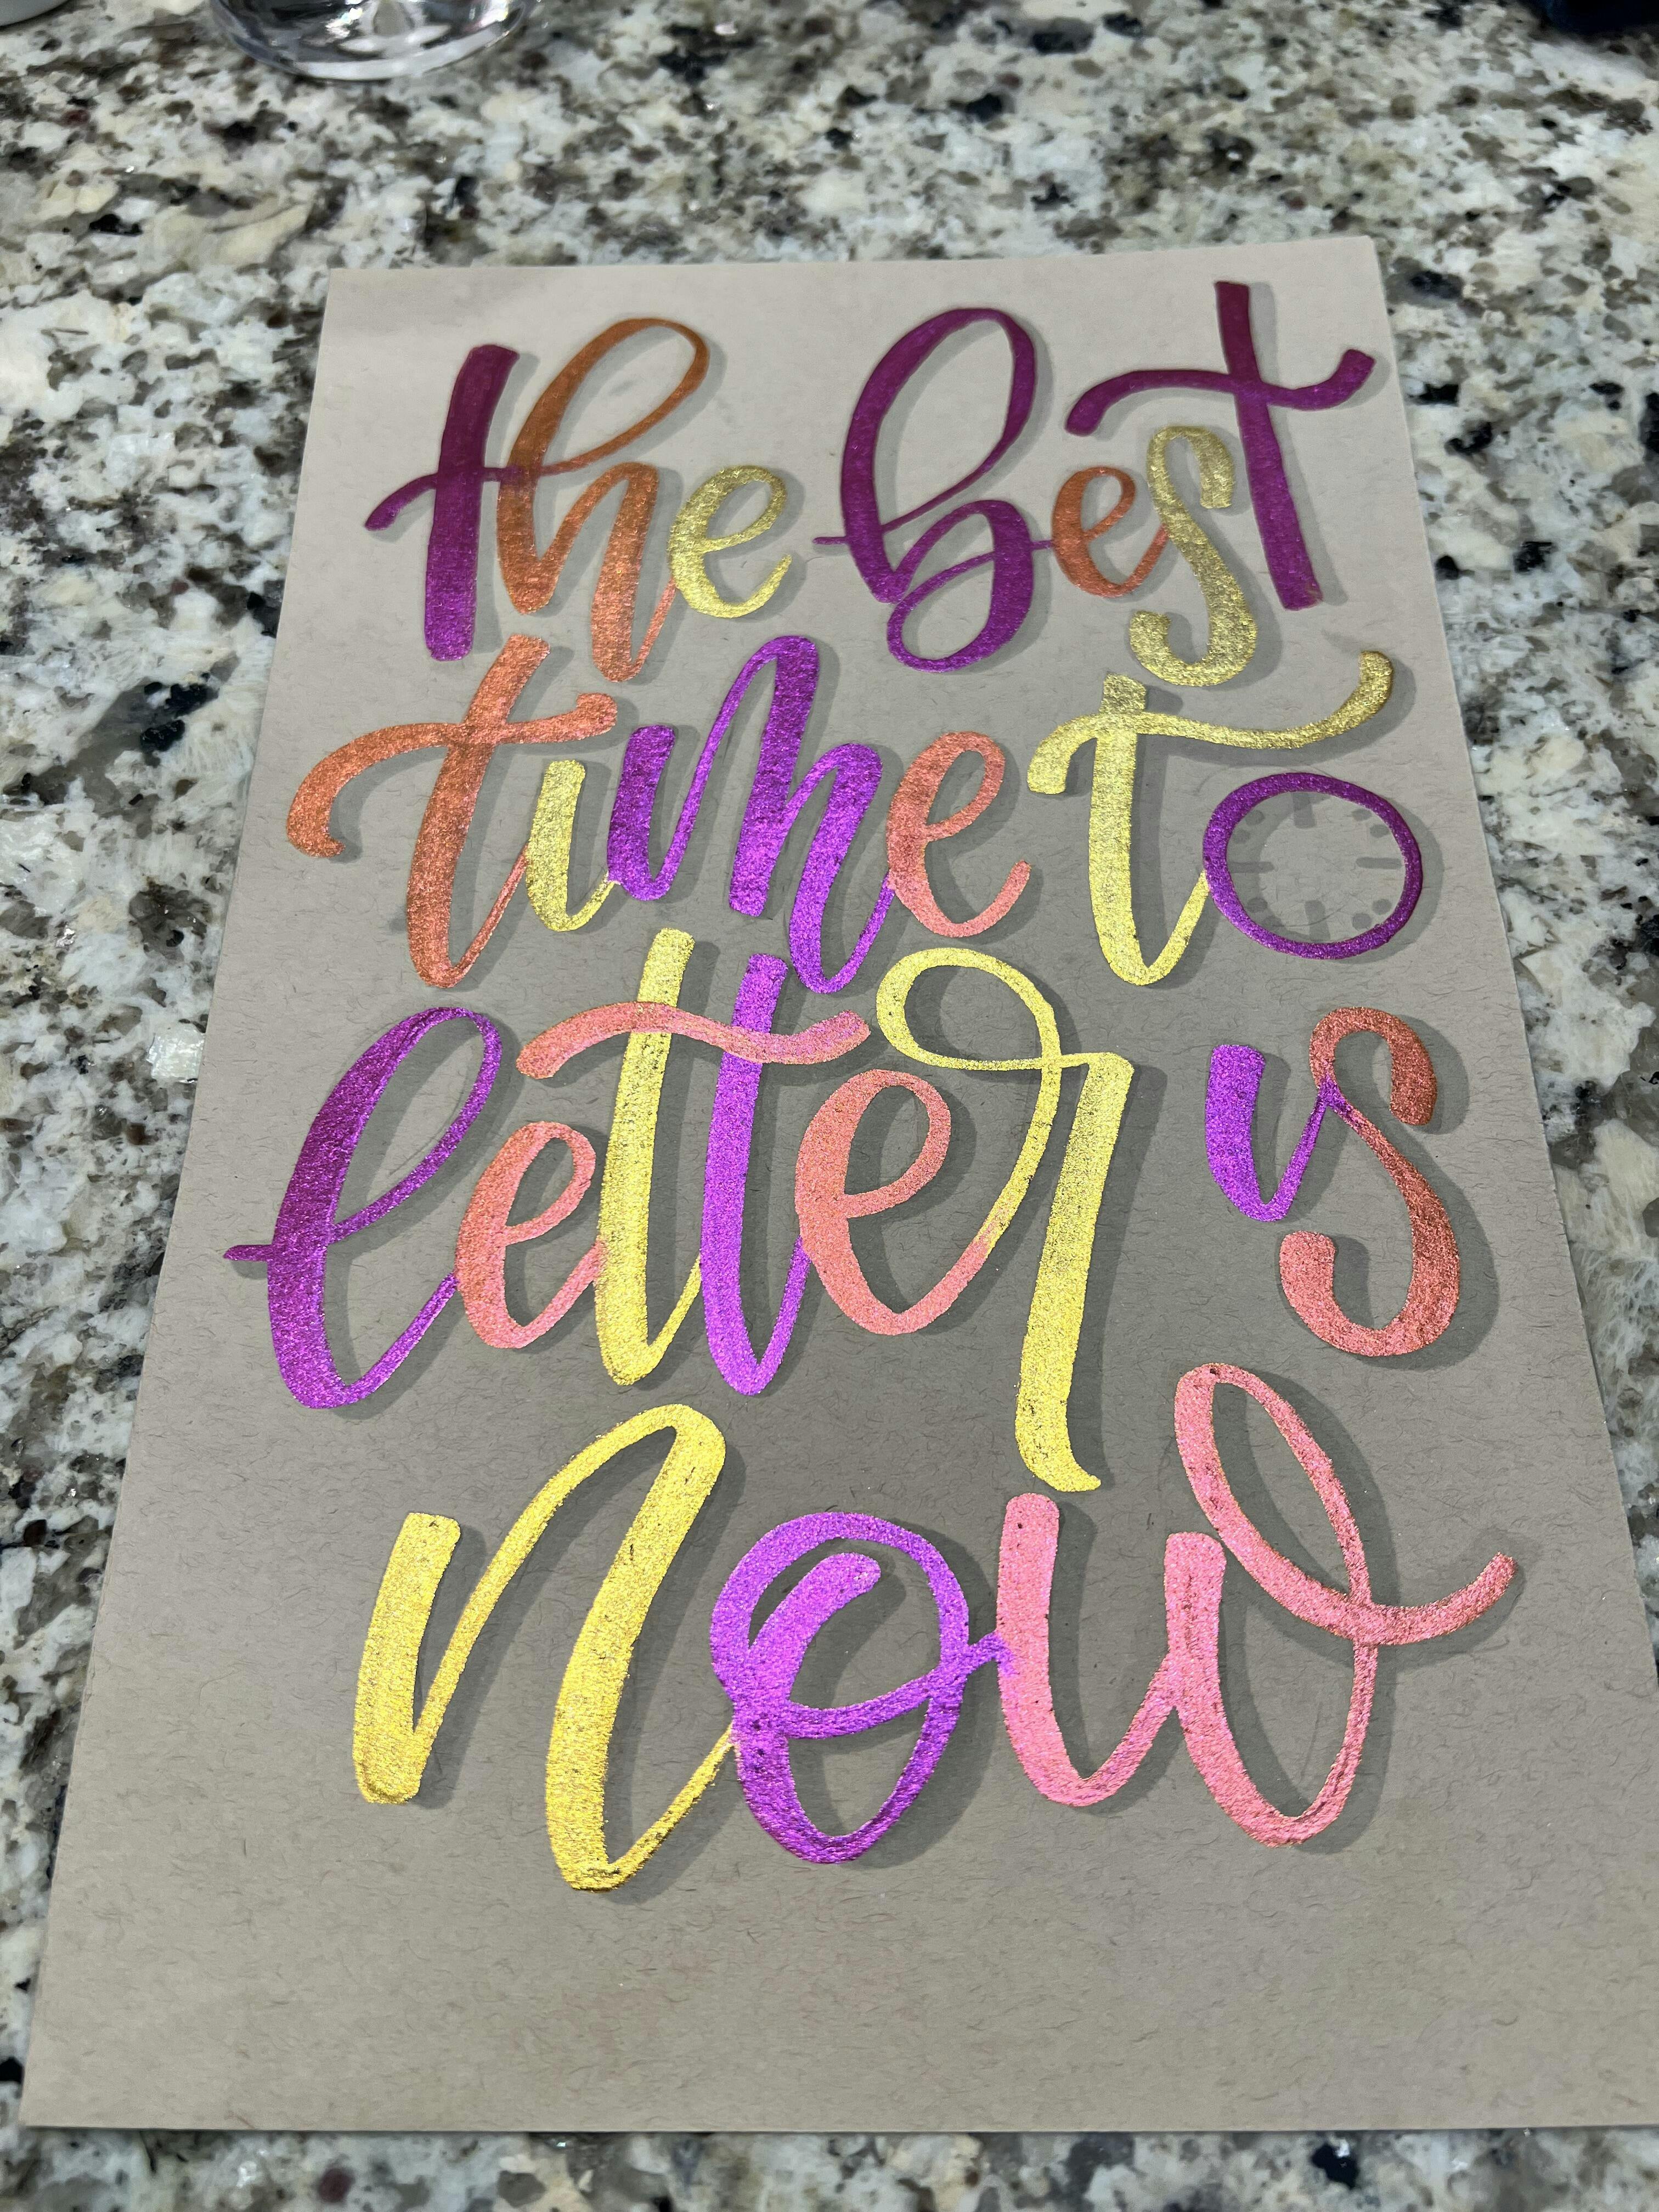 the best
time to
letter is
now